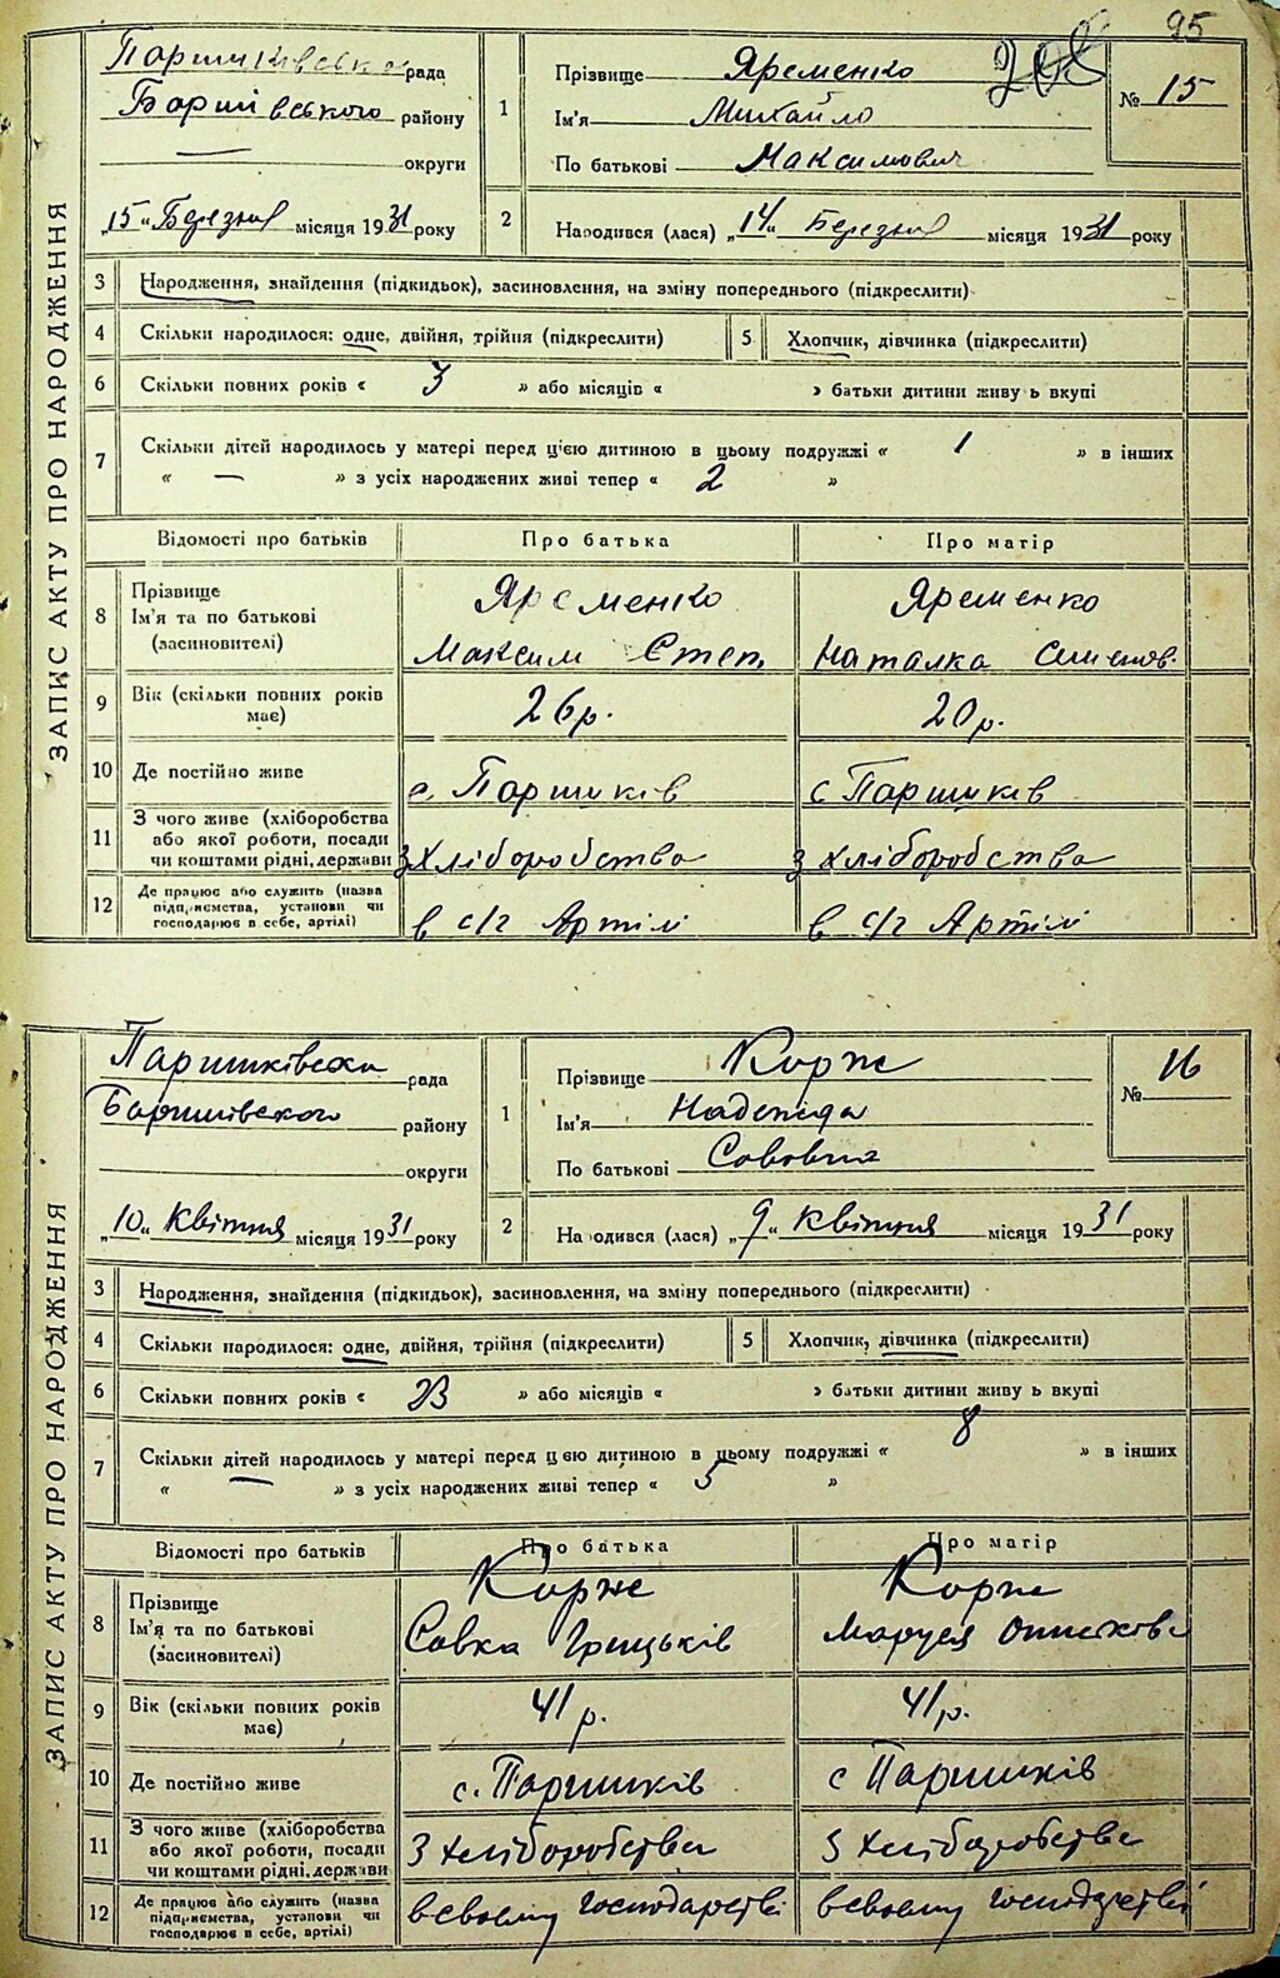 95
ЗАПИС АКТУ ПРО НАРОДЖЕННЯ
Паришківська рада
Баришівського району
округи
„15“ Березня місяця 1931 року
1
Прізвище Яременко
Ім'я Михайло
По батькові Максимович
№ 15
2
Народився (лася) „14“ Березня місяця 1931 року
3 Народження, знайдення (підкидьок), засиновлення, на зміну попереднього (підкреслити)
4 Скільки народилося: одне, двійня, трійня (підкреслити) 5 Хлопчик, дівчинка (підкреслити)
6 Скільки повних років « 3 » або місяців « » батьки дитини живуть вкупі
7 Скільки дітей народилось у матері перед цією дитиною в цьому подружжі « 1 » в інших
« — » з усіх народжених живі тепер « 2 »
Відомості про батьків Про батька Про матір
8 Прізвище Яременко Яременко
Ім'я та по батькові Максим Степ. Наталка Семенов.
(засиновителі)
9 Вік (скільки повних років має) 26 р. 20 р.
10 Де постійно живе с. Паришків с Паришків
11 З чого живе (хліборобства
або якої роботи, посади
чи коштами рідні, держави з хліборобства з хліборобства
12 Де працює або служить (назва
підприємства, установи чи
господарює в себе, артілі) в с/г Артілі в с/г Артілі
ЗАПИС АКТУ ПРО НАРОДЖЕННЯ
Паришківська рада
Баришівського району
округи
„10“ Квітня місяця 1931 року
1
Прізвище Корж
Ім'я Надежда
По батькові Сововна
№ 16
2
Народився (лася) „9“ Квітня місяця 1931 року
3 Народження, знайдення (підкидьок), засиновлення, на зміну попереднього (підкреслити)
4 Скільки народилося: одне, двійня, трійня (підкреслити) 5 Хлопчик, дівчинка (підкреслити)
6 Скільки повних років « 23 » або місяців « » батьки дитини живуть вкупі
7 Скільки дітей народилось у матері перед цією дитиною в цьому подружжі « 8 » в інших
« — » з усіх народжених живі тепер « 5 »
Відомості про батьків Про батька Про матір
8 Прізвище Корж Корж
Ім'я та по батькові Совка Грицьків Маруся
(засиновителі)
9 Вік (скільки повних років має) 41 р. 41 р.
10 Де постійно живе с. Паришків с Паришків
11 З чого живе (хліборобства
або якої роботи, посади
чи коштами рідні, держави З хліборобства З хліборобства
12 Де працює або служить (назва
підприємства, установи чи
господарює в себе, артілі) в своєму господарстві в своєму господарстві